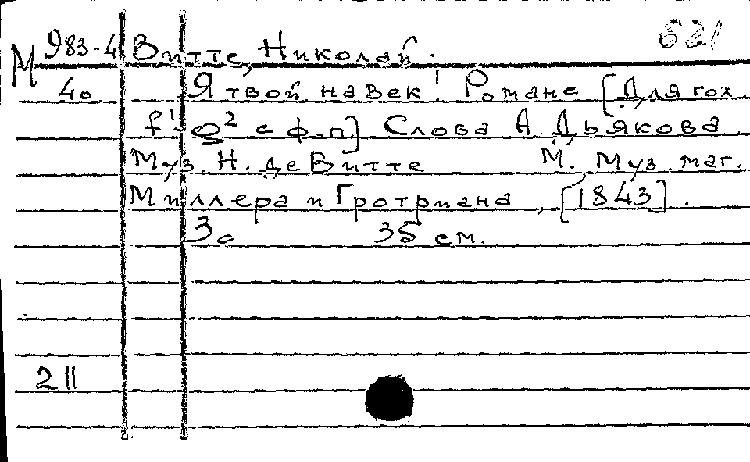 М 983-4 Витте, Николай. 621
40 Я твой навек! Романс [Для гол.
f¹-g² с ф-п] Слова А Дьякова
Муз. Н. де Витте М. Муз маг.
Миллера и Гротриана, [1843].
3с 35 см.
211